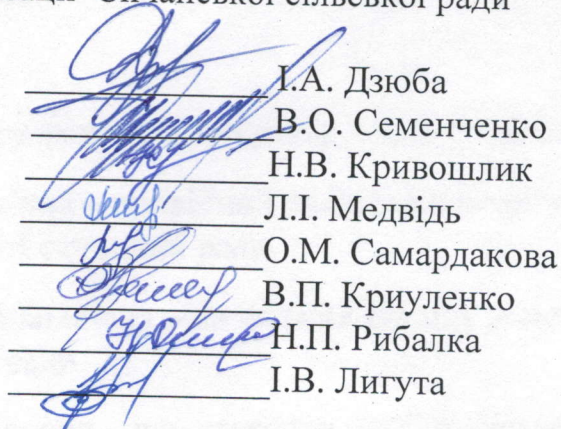 сільської ради
І.А. Дзюба
В.О. Семенченко
Н.В. Кривошлик
Л.І. Медвідь
О.М. Самардакова
В.П. Криуленко
Н.П. Рибалка
І.В. Лигута